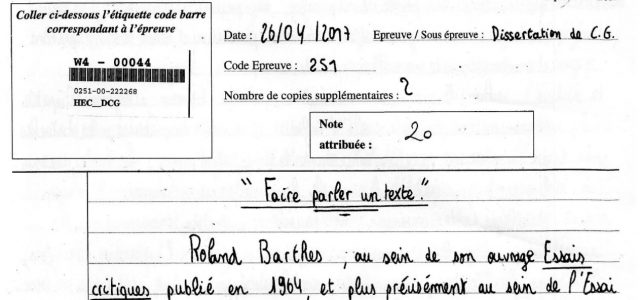 Coller ci-dessous l'étiquette code barre
correspondant à l'épreuve
W4 - 00044
0251-00-222268
HEC_DCG
Date : 26/04/2017 Epreuve / Sous épreuve : Dissertation de C.G.
Code Epreuve : 251
Nombre de copies supplémentaires : 2
Note
attribuée : 20
"Faire parler un texte."
Roland Barthes, au sein de son ouvrage Essais
critiques publié en 1964, et plus précisément au sein de l'Essai